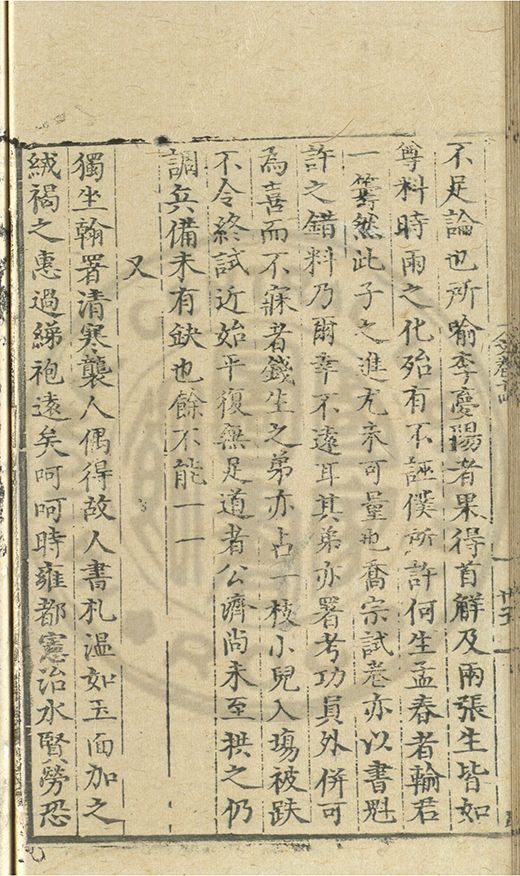 不足論也所喻李慶陽者果得首解及兩張生皆如
尊料時雨之化殆有不誣僕所許何生孟春者輸君
一籌然此子之進尤未可量也喬宗試卷亦以書魁
許之錯料乃爾幸不遠耳其弟亦署考功員外併可
為喜而不寐者錢生之弟亦占一枝小兒入場被跌
不令終試近始平復無足道者公濟尚未至拱之仍
調兵備未有缺也餘不能一一
又
獨坐翰署清寒襲人偶得故人書札溫如玉而加之
絨褐之惠過綈袍遠矣呵呵時雍都憲治水賢勞恐